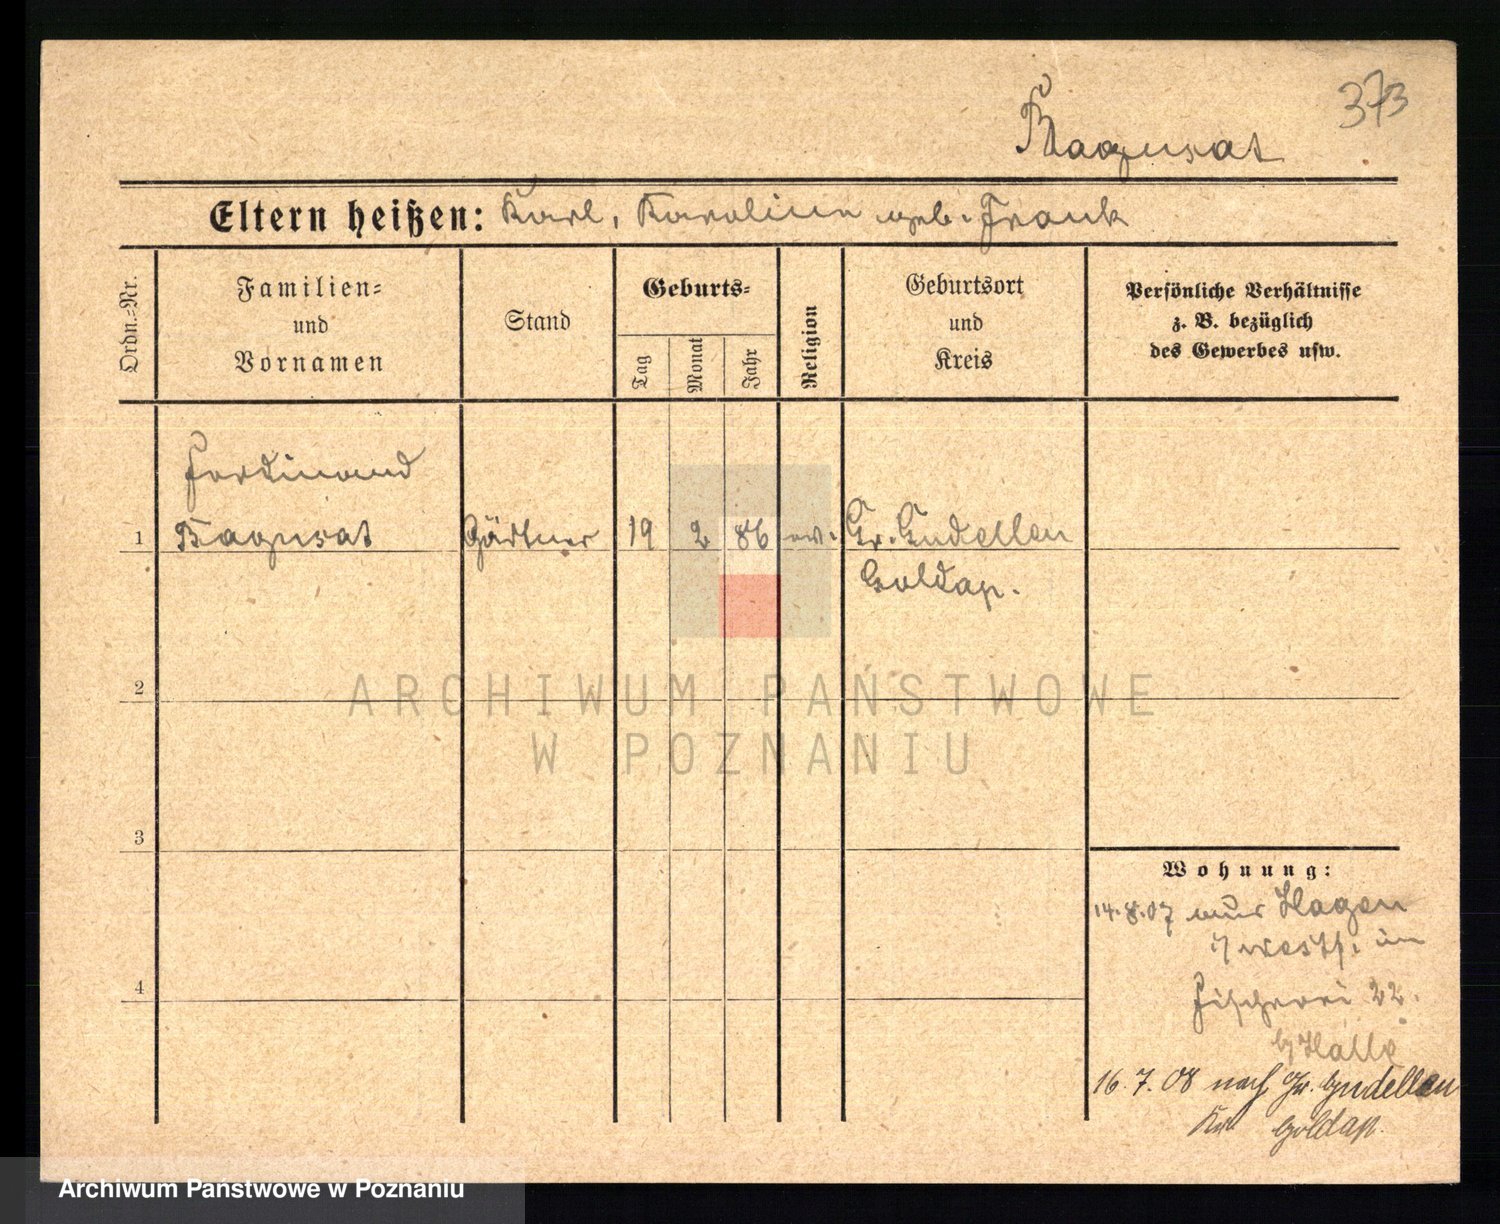 373
Bagusat
Eltern heißen: Karl, Karoline geb. Frank
Ordn.-Nr.
Familien-
und
Vornamen
Stand
Geburts-
Tag
Monat
Jahr
Religion
Geburtsort
und
Kreis
Persönliche Verhältnisse
z. B. bezüglich
des Gewerbes usw.
Ferdinand
1 Bagusat Gärtner 19 2 86 ev. Gr. Gudellen
Goldap.
2
ARCHIWUM PAŃSTWOWE
W POZNANIU
3
4
Wohnung:
14.8.07 aus Hagen
i/ westf. in
Fischerei 22.
b/ Halle
16.7.08 nach Gr. Gudellen
Kr. Goldap.
Archiwum Państwowe w Poznaniu